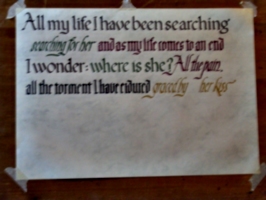 All my life I have been searching
searching for her and as my life comes to an end
I wonder: where is she? All the pain,
all the torment I have endured graced by her kiss